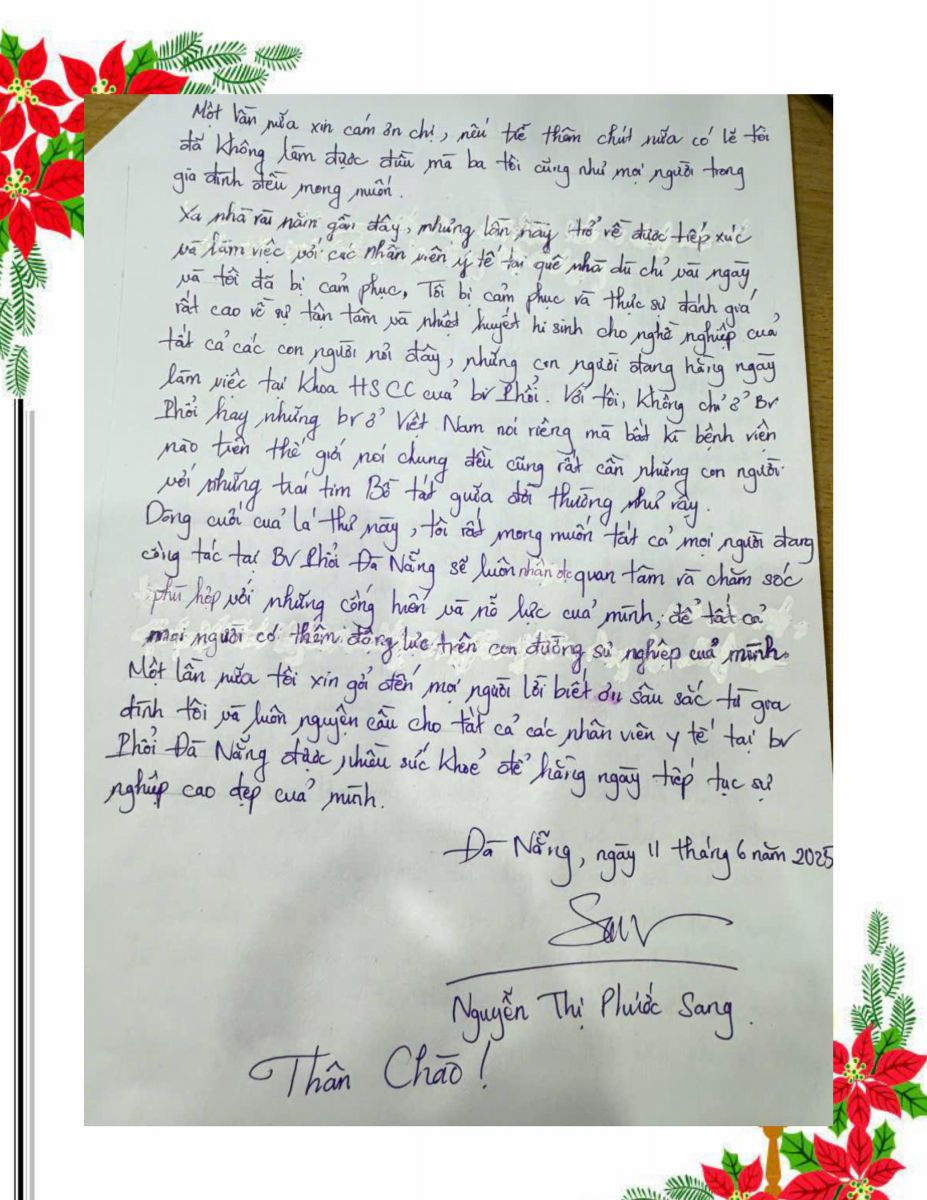 Một lần nữa xin cám ơn chị, nếu trễ thêm chút nữa có lẽ tôi
đã không làm được điều mà ba tôi cũng như mọi người trong
gia đình đều mong muốn.
Xa nhà vài năm gần đây, nhưng lần này trở về được tiếp xúc
và làm việc với các nhân viên y tế tại quê nhà dù chỉ vài ngày
và tôi đã bị cảm phục, Tôi bị cảm phục và thực sự đánh giá
rất cao về sự tận tâm và nhiệt huyết hi sinh cho nghề nghiệp của
tất cả các con người nơi đây, những con người đang hằng ngày
làm việc tại khoa HSCC của bv Phổi. Với tôi, không chỉ ở BV
Phổi hay những bv ở Việt Nam nói riêng mà bất kì bệnh viện
nào trên thế giới nói chung đều cũng rất cần những con người
với những trái tim Bồ tát giữa đời thường như vầy.
Dòng cuối của lá thư này, tôi rất mong muốn tất cả mọi người đang
công tác tại BV Phổi Đà Nẵng sẽ luôn nhận đc quan tâm và chăm sóc
phù hợp với những cống hiến và nỗ lực của mình, để tất cả
mọi người có thêm động lực trên con đường sự nghiệp của mình.
Một lần nữa tôi xin gởi đến mọi người lời biết ơn sâu sắc từ gia
đình tôi và luôn nguyện cầu cho tất cả các nhân viên y tế tại bv
Phổi Đà Nẵng được nhiều sức khoẻ để hằng ngày tiếp tục sự
nghiệp cao đẹp của mình.
Đà Nẵng, ngày 11 tháng 6 năm 2025
Nguyễn Thị Phước Sang.
Thân Chào!